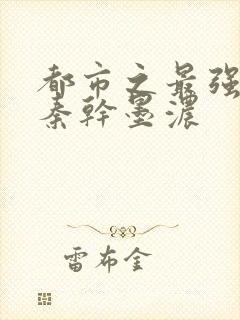 都市之最强
秦幹墨濃
雷布金